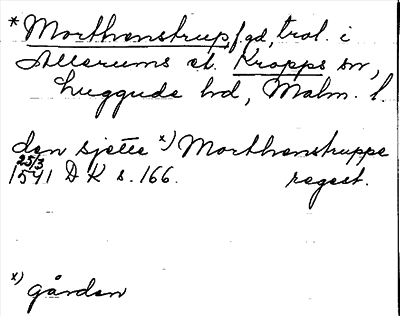 * Morthenstrup, f.gd, trol. i
Allerums el. Kropps sn,
Luggude hd, Malm. l.
den sjette x) Morthenstruppe
25/3
1541 DK s. 166. regest.
x) gården